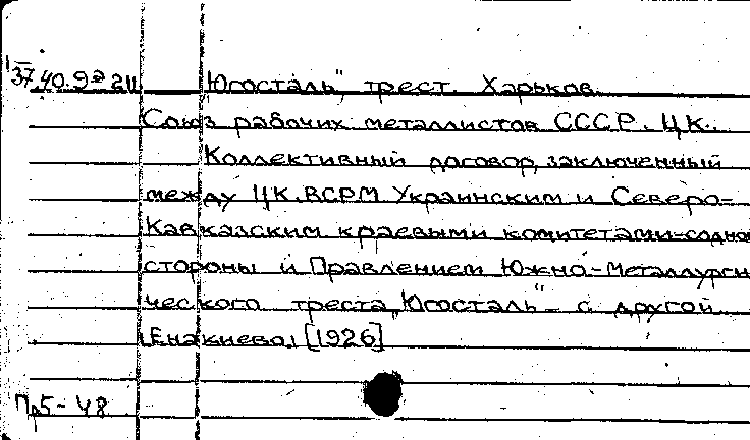 37.40.92211 "Югосталь", трест. Харьков.
Союз рабочих металлистов СССР. ЦК.
Коллективный договор, заключенный
между ЦК.ВСРМ Украинским и Северо-
Кавказским краевыми комитетами-содной
стороны и Правлением Южно-Металлурги
ческого треста "Югосталь" - с другой
Енакиево, [1926]
Пр5-48